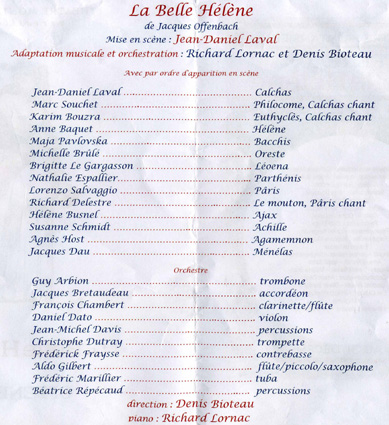 La Belle Hélène
de Jacques Offenbach
Mise en scène : Jean-Daniel Laval
Adaptation musicale et orchestration : Richard Lornac et Denis Bioteau
Avec par ordre d'apparition en scène
Jean-Daniel Laval ........ Calchas
Marc Souchet ........ Philocome, Calchas chant
Karim Bouzra ........ Euthyclès, Calchas chant
Anne Baquet ........ Hélène
Maja Pavlovska ........ Bacchis
Michelle Brûlé ........ Oreste
Brigitte Le Gargasson ........ Léoena
Nathalie Espallier ........ Parthénis
Lorenzo Salvaggio ........ Pâris
Richard Delestre ........ Le mouton, Pâris chant
Hélène Busnel ........ Ajax
Susanne Schmidt ........ Achille
Agnès Host ........ Agamemnon
Jacques Dau ........ Ménélas
Orchestre
Guy Arbion ........ trombone
Jacques Bretaudeau ........ accordéon
François Chambert ........ clarinette/flûte
Daniel Dato ........ violon
Jean-Michel Davis ........ percussions
Christophe Dutray ........ trompette
Frédérick Fraysse ........ contrebasse
Aldo Gilbert ........ flûte/piccolo/saxophone
Frédéric Marillier ........ tuba
Béatrice Répécaud ........ percussions
direction : Denis Bioteau
piano : Richard Lornac